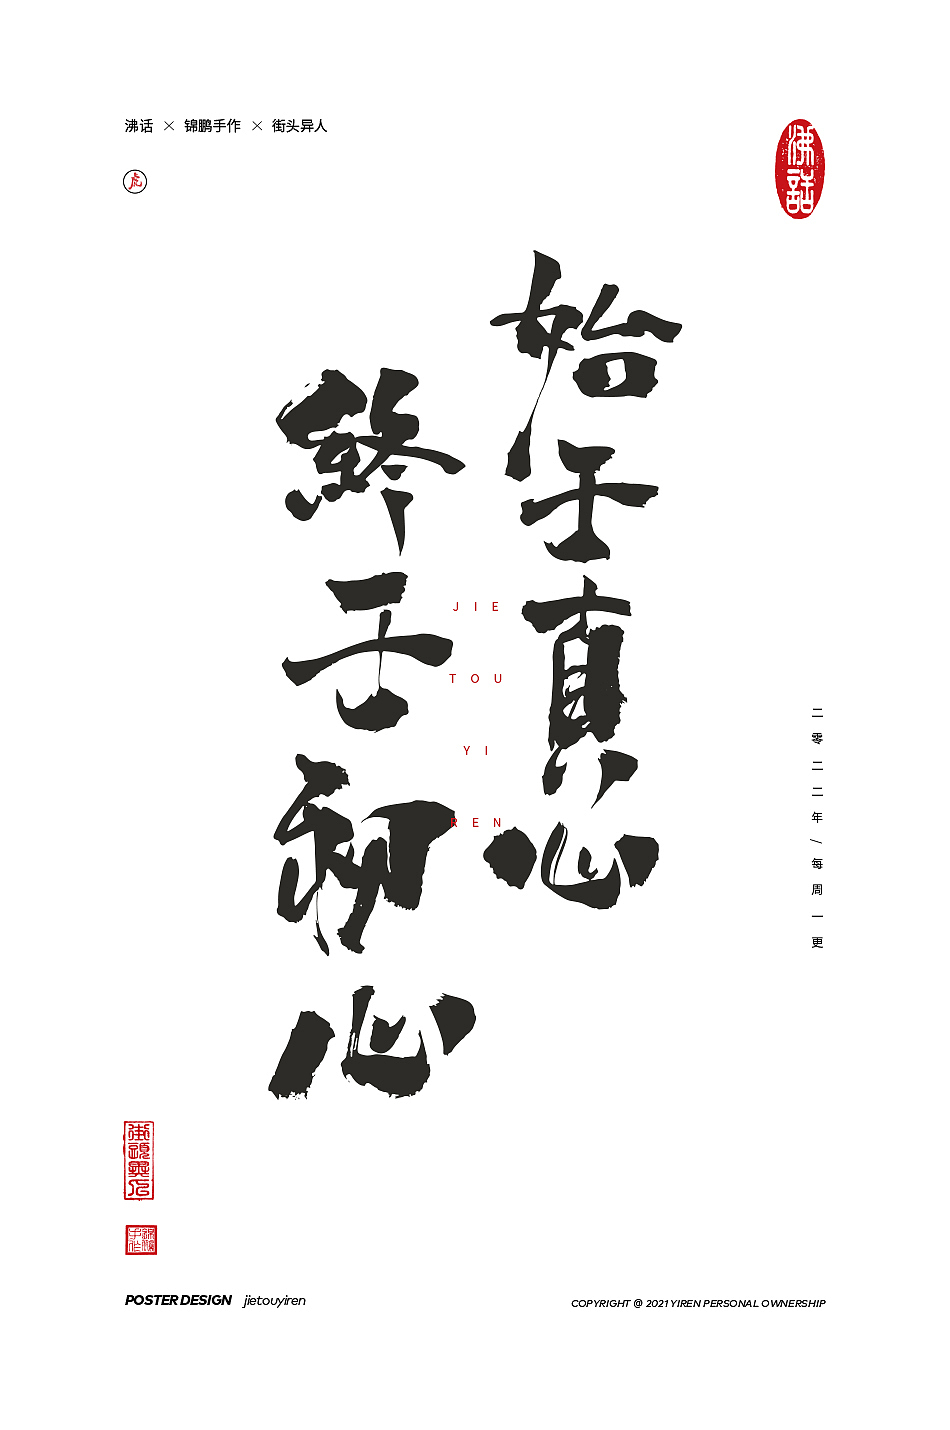 沸话 × 锦鹏手作 × 街头异人
虎
沸話
始于真心
終于初心
JIE
TOU
YI
REN
二零二二年/每周一更
街頭異人
POSTER DESIGN jietouyiren
COPYRIGHT @ 2021 YIREN PERSONAL OWNERSHIP